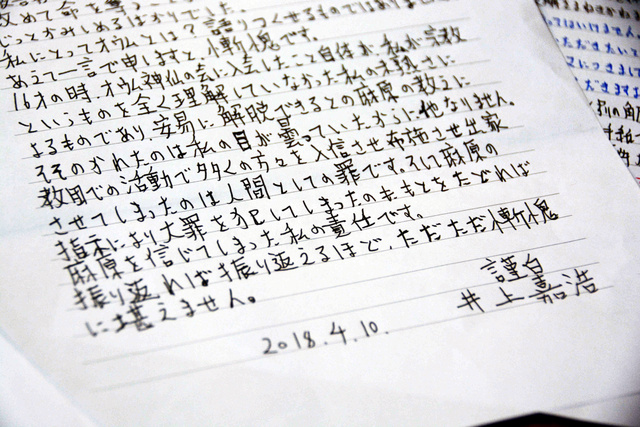 じっとかみしめるばかりでした。
私にとってオウムとは？語りつくせるものではありま
あえて一言で申しますと、慚愧です。
16才の時、オウム神仙の会に入会したこと自体が、私が宗教
というものを全く理解していなかった私の未熟さに
よるものであり、安易に解脱できるとの麻原の教えに
そそのかれたのは私の目が曇っていたからに他なりません。
教団での活動で多くの方々を入信させ布施させ出家
させてしまったのは人間としての罪です。そして麻原の
指示により大罪を犯してしまったのももとをたどれば
麻原を信じてしまった私の責任です。
振り返れば振り返るほど、ただただ慚愧
に堪えません。
謹白
井上嘉浩
2018.4.10.